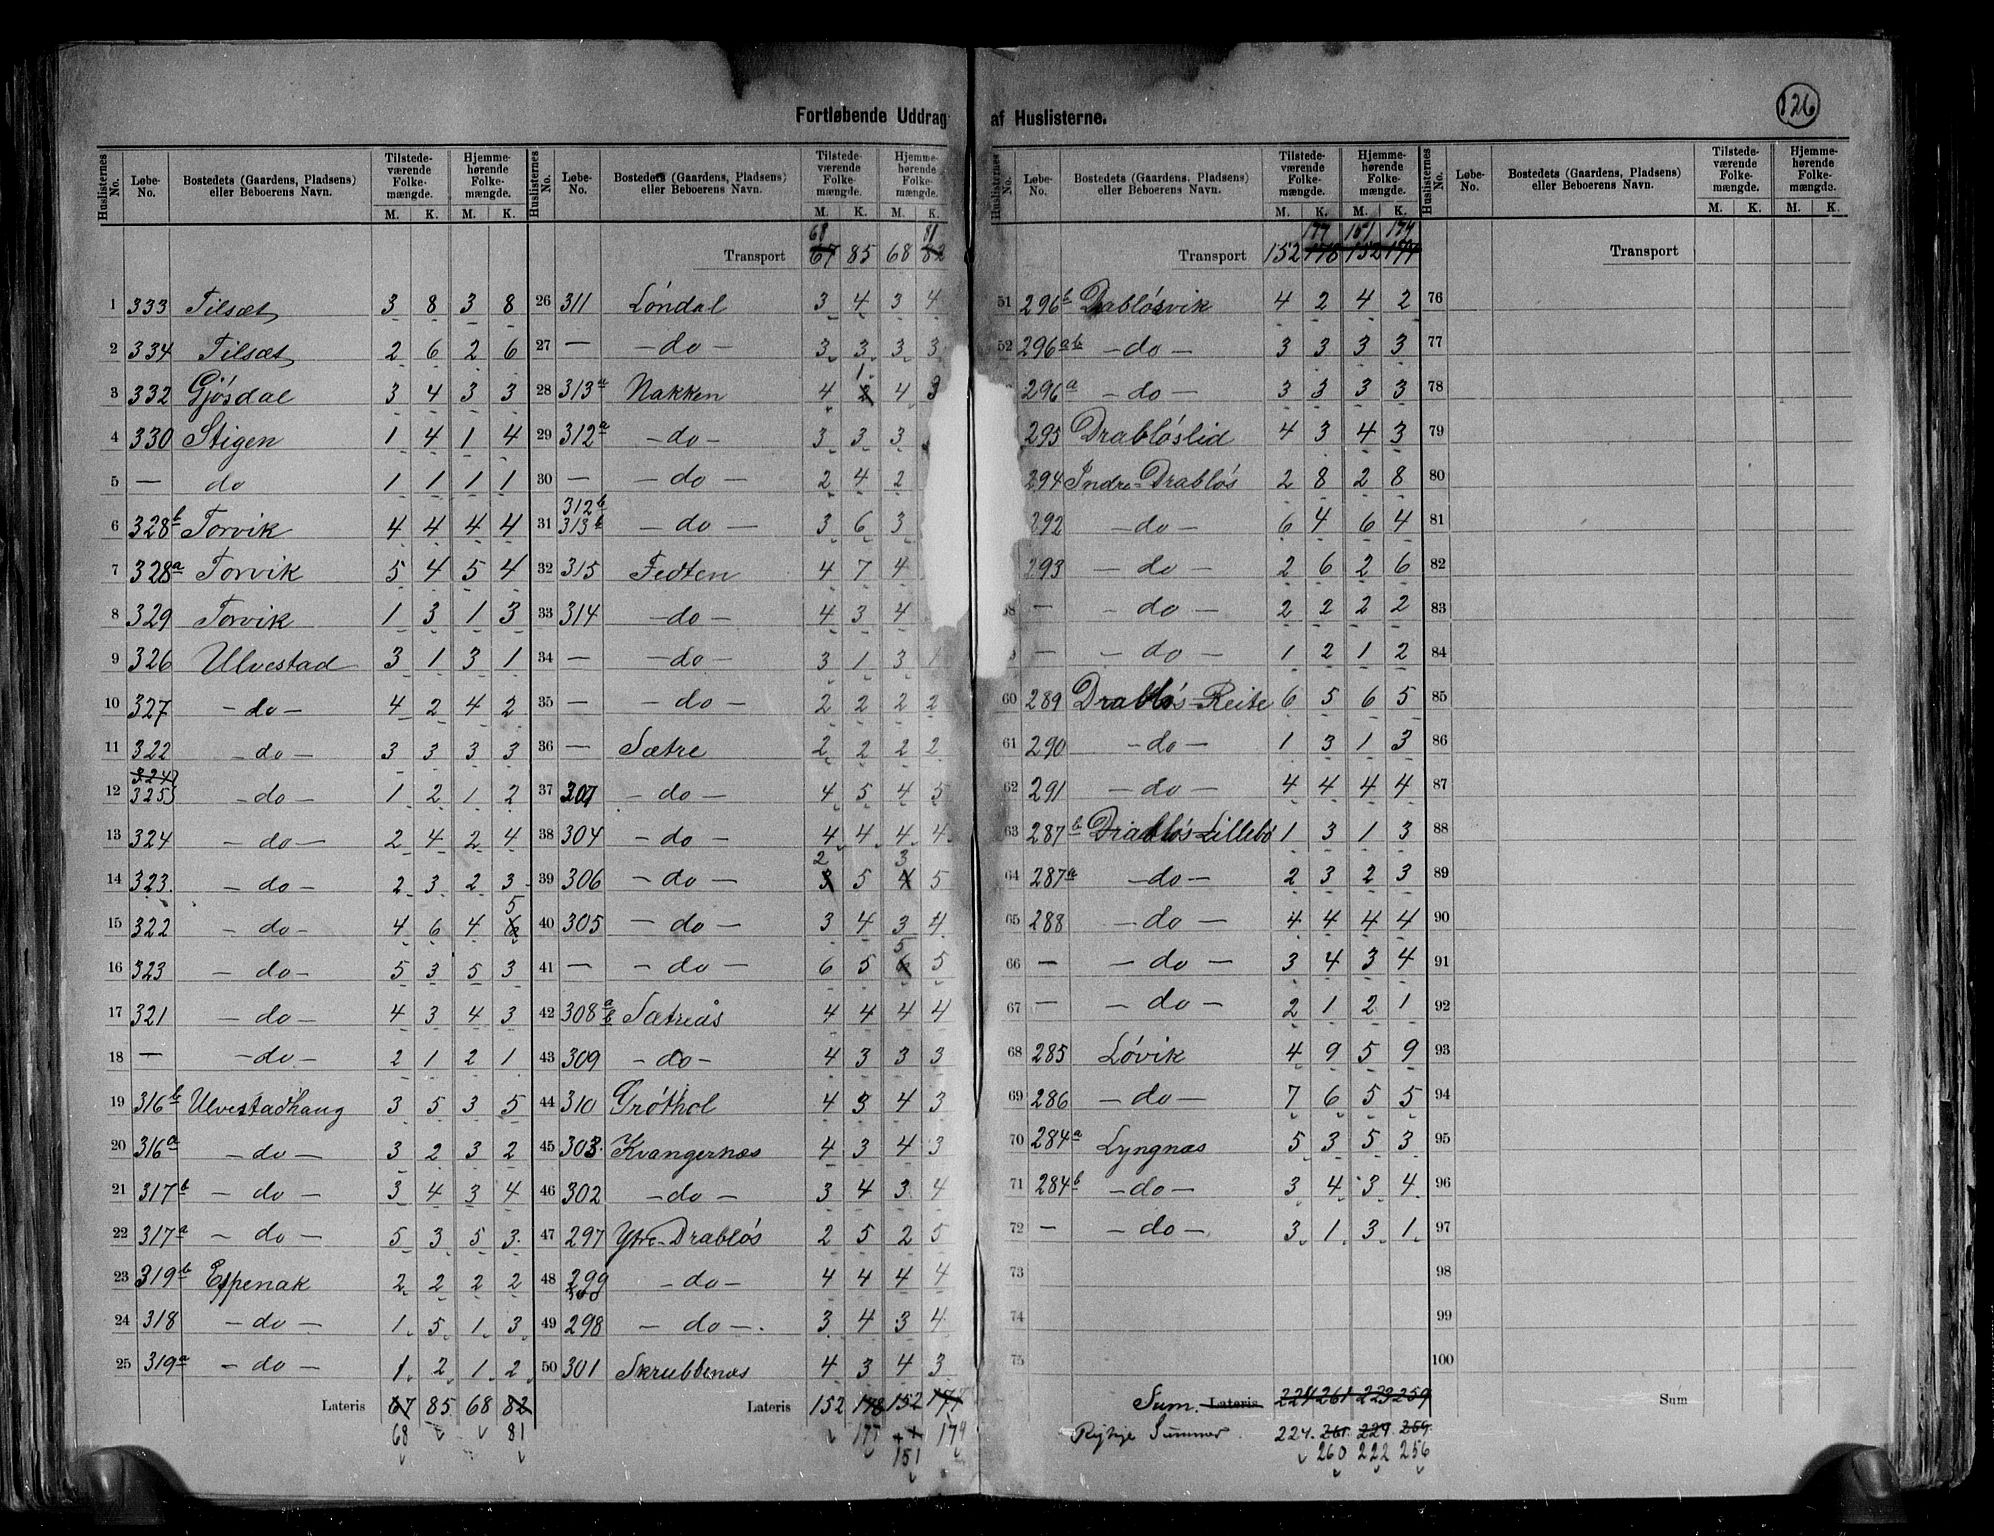 Fortløbende Uddrag af Huslisterne.
126
Huslisternes No. Løbe-No. Bostedets (Gaardens, Pladsens) eller Beboerens Navn. Tilstedeværende Folkemængde. M. K. Hjemmehørende Folkemængde. M. K.
1 333 Tilsæt 3 8 3 8
2 334 Tilsæt 2 6 2 6
3 332 Gjösdal 3 4 3 3
4 330 Stigen 1 4 1 4
5 — do 1 1 1 1
6 328b Torvik 4 4 4 4
7 328a Torvik 5 4 5 4
8 329 Torvik 1 3 1 3
9 326 Ulvestad 3 1 3 1
10 327 - do - 4 2 4 2
11 322 - do - 3 3 3 3
12 324 325 - do - 1 2 1 2
13 324 - do - 2 4 2 4
14 323. - do - 2 3 2 3
15 322 - do - 4 6 4 6 5
16 323 - do - 5 3 5 3
17 321 - do - 4 3 4 3
18 — - do - 2 1 2 1
19 316b Ulvestadhaug 3 5 3 5
20 316a - do - 3 2 3 2
21 317b - do - 3 4 3 4
22 317a - do - 5 3 5 3
23 319b Espenak 2 2 2 2
24 318 - do - 1 5 1 3
25 319a - do - 1 2 1 2
Lateris 67 85 68 82
68 81
Huslisternes No. Løbe-No. Bostedets (Gaardens, Pladsens) eller Beboerens Navn. Tilstedeværende Folkemængde. M. K. Hjemmehørende Folkemængde. M. K.
68 81
Transport 67 85 68 82
26 311 Löndal 3 4 3 4
27 — - do - 3 3 3 3
28 313a Nakken 4 1 4 3
29 312a - do - 3 3 3
30 — - do - 2 4 2
31 312b 313b - do - 3 6 3
32 315 Fedten 4 7 4
33 314 - do - 4 3 4
34 — - do - 3 1 3 1
35 — - do - 2 2 2 2
36 — Sætre 2 2 2 2
37 307 - do - 4 5 4 5
38 304 - do - 4 4 4 4
39 306 - do - 3 2 5 4 3 5
40 305 - do - 3 4 3 4
41 — - do - 6 5 6 5 5
42 308a b Sætreås 4 4 4 4
43 309 - do - 4 3 3 3
44 310 Gröthol 4 3 4 3
45 303. Kvangernæs 4 3 4 3
46 302 - do - 3 4 3 4
47 297 Ytre-Drablös 2 5 2 5
48 299 300 - do - 4 4 4 4
49 298 - do -. 3 4 3 4
50 301 Skrubbenæs 4 3 4 3
Lateris 152 178 152 177
177 151 174
Huslisternes No. Løbe-No. Bostedets (Gaardens, Pladsens) eller Beboerens Navn. Tilstedeværende Folkemængde. M. K. Hjemmehørende Folkemængde. M. K.
177 151 174
Transport 152 178 152 177
51 296b Drablösvik 4 2 4 2
52 296ab - do - 3 3 3 3
296a - do - 3 3 3 3
295 Drablöslid 4 3 4 3
294 Indre-Drablös 2 8 2 8
292 - do - 6 4 6 4
293 - do - 2 6 2 6
— - do - 2 2 2 2
— - do - 1 2 1 2
60 289 Drablös-Reite 6 5 6 5
61 290 - do - 1 3 1 3
62 291 - do - 4 4 4 4
63 287b Drablös-Lillebö 1 3 1 3
64 287a - do - 2 3 2 3
65 288 - do - 4 4 4 4
66 — - do - 3 4 3 4
67 — - do - 2 1 2 1
68 285 Lövik 4 9 5 9
69 286 - do - 7 6 5 5
70 284a Lyngnæs 5 3 5 3
71 284b - do - 3 4 3 4
72 — - do - 3 1 3 1
73
74
75
Sum. Lateris 224 261 223 259
Rigtige Summer. 224. 261 224 259
260 222 256
Huslisternes No. Løbe-No. Bostedets (Gaardens, Pladsens) eller Beboerens Navn. Tilstedeværende Folkemængde. M. K. Hjemmehørende Folkemængde. M. K.
Transport
76
77
78
79
80
81
82
83
84
85
86
87
88
89
90
91
92
93
94
95
96
97
98
99
100
Sum